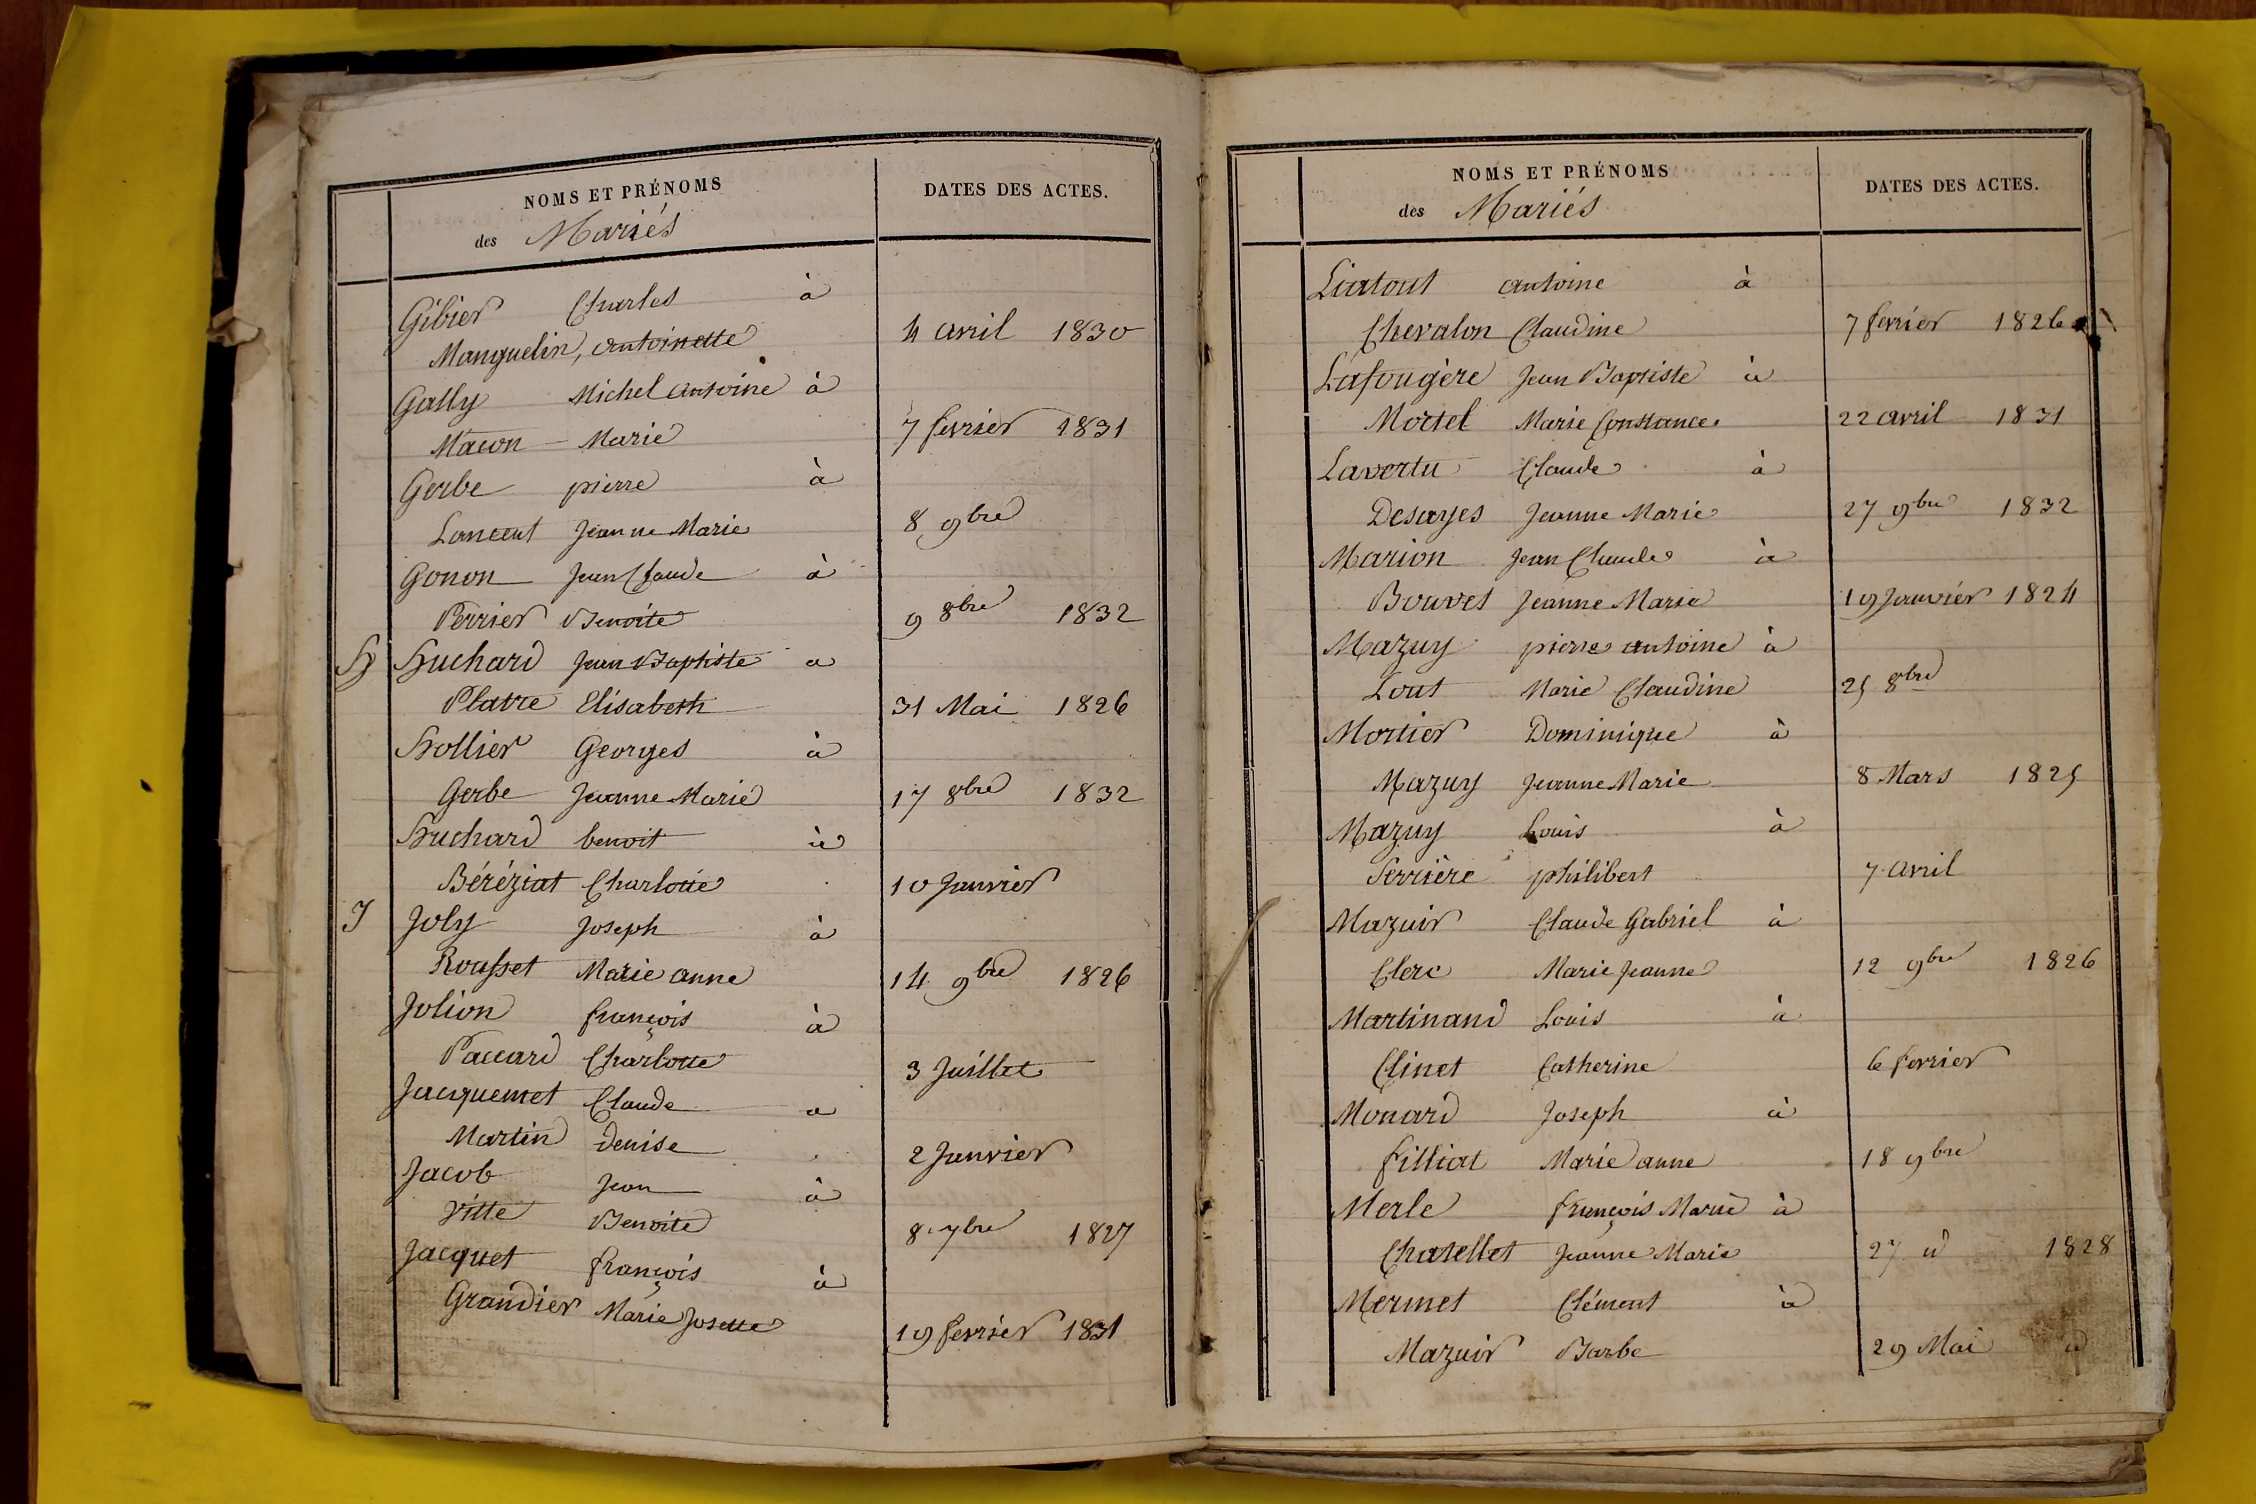 NOMS ET PRÉNOMS
des Mariés
DATES DES ACTES.
Gibier Charles à
Manguelin, antoinette 4 avril 1830
Gally Michel antoine à
Macon Marie 7 fevrier 1831
Gerbe pierre à
Lancent Jeanne Marie 8 9bre
Gonon Jean Claude à
Perrier Benoite 9 8bre 1832
H Huchard Jean Baptiste a
Platre Elisabeth 31 Mai 1826
Hollier Georges à
Gerbe Jeanne Marie 17 8bre 1832
Huchard benoit à
Béréziat Charlotte 10 Janvier
J Joly Joseph à
Rousset Marie anne 14 9bre 1826
Jolion françois à
Paccard Charlotte 3 Juillet
Jacquemet Claude a
Martin denise 2 Janvier
Jacob Jean à
Vitte Benoite 8 7bre 1827
Jacquet françois à
Grandier Marie Josette 19 fevrier 1831
NOMS ET PRÉNOMS
des Mariés
DATES DES ACTES.
Liatout antoine à
Chevalon Claudine 7 fevrier 1826
Lafougère Jean Baptiste à
Mortel Marie Constance. 22 avril 1831
Lavertu Claude à
Desayes Jeanne Marie 27 9bre 1832
Marion Jean Claude à
Bouvet Jeanne Marie 19 Janvier 1824
Mazuy pierre antoine à
Lout Marie Claudine 25 8bre
Mortier Dominique à
Mazuy Jeanne Marie 8 Mars 1825
Mazuy Louis à
Perrière philibert 7 avril
Mazuir Claude Gabriel à
Clerc Marie Jeanne 12 9bre 1826
Martinand Louis à
Clinet Catherine 6 fevrier
Monard Joseph à
filliat Marie anne 18 9bre
Merle françois Marie à
Chatellet Jeanne Marie 27 d 1828
Mermet Clément à
Mazuir Barbe 29 Mai d